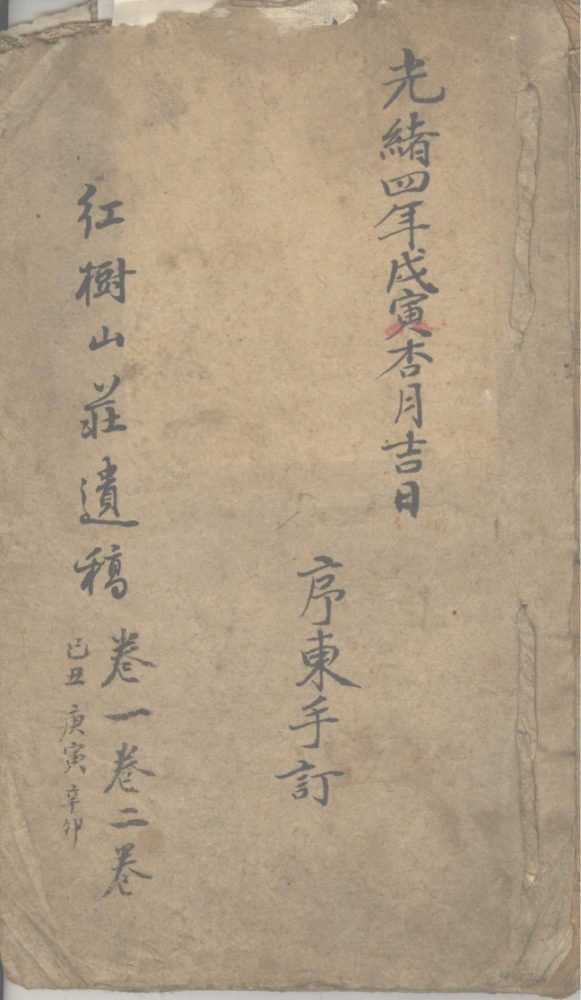 光緒四年戊寅杏月吉日
序東手訂
紅樹山莊遺稿
卷一卷二卷
己丑 庚寅 辛卯